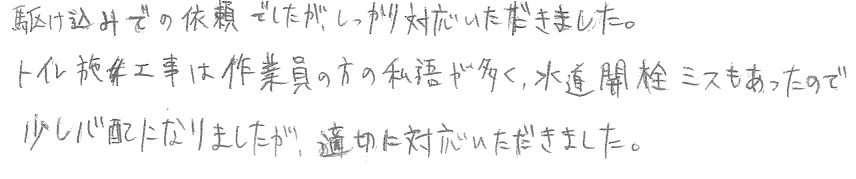 駆け込みでの依頼でしたが、しっかり対応いただきました。
トイレ施工工事は作業員の方の私語が多く、水道開栓ミスもあったので
少し心配になりましたが、適切に対応いただきました。